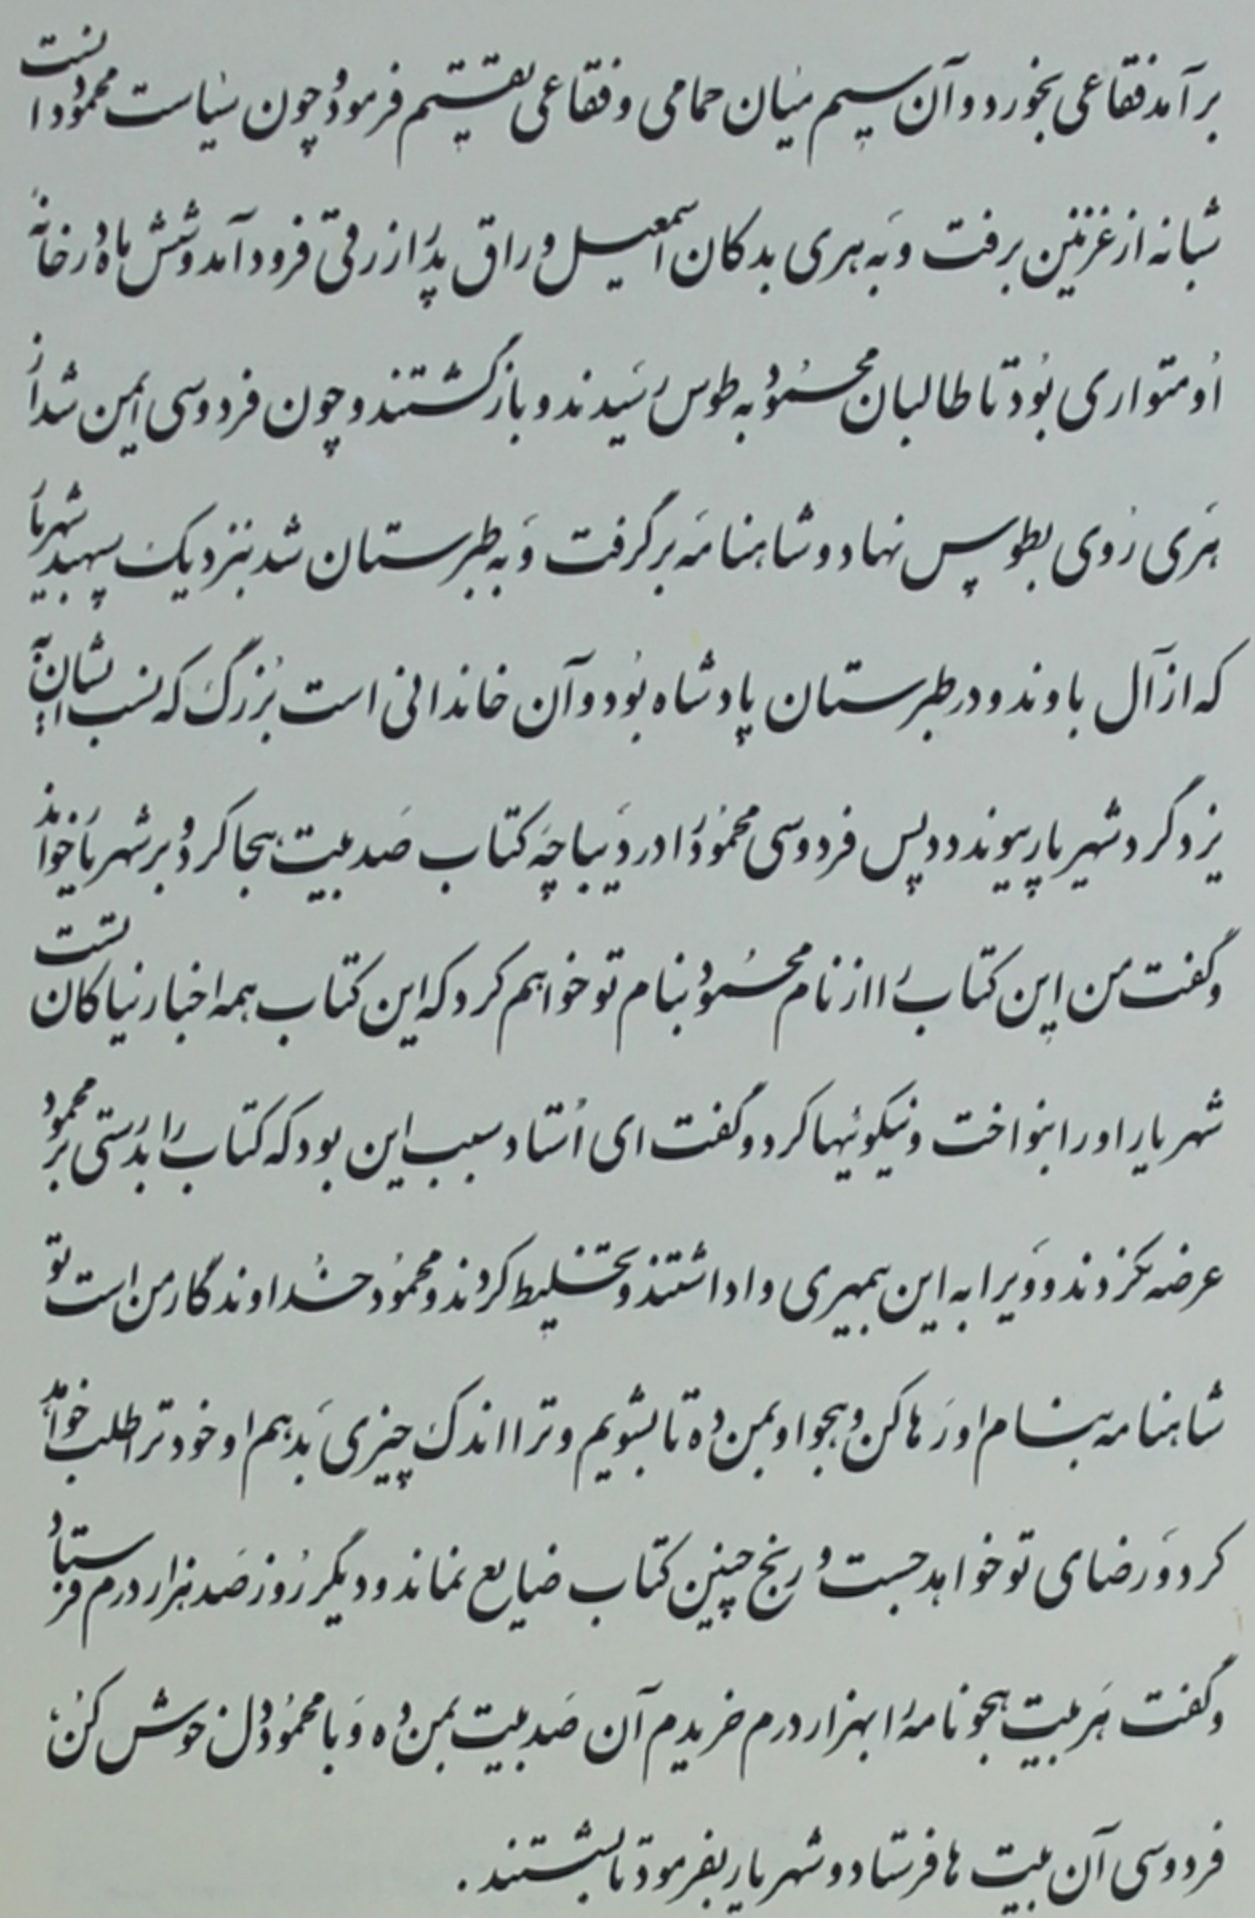 برآمد فقاعی بخورد و آن سیم میان حمامی و فقاعی تقسیم فرمود و چون سیاست محمود دانست
شبانه از غزنین برفت و به هری بدکان اسمعیل وراق پدر ازرقی فرود آمد و شش ماه در خانه
او متواری بود تا طالبان محمود به طوس رسیدند و بازگشتند و چون فردوسی ایمن شد از
هری روی بطوس نهاد و شاهنامه برگرفت و به طبرستان شد بنزدیک سپهبد شهریار
که از آل باوند در طبرستان پادشاه بود و آن خاندانی است بزرگ که نسب ایشان به
یزدگرد شهریار پیوندد پس فردوسی محمود را در دیباچه کتاب صد بیت هجا کرد و بر شهریار خواند
و گفت من این کتاب را از نام محمود بنام تو خواهم کرد که این کتاب همه اخبار نیاکان تست
شهریار او را بنواخت و نیکوئیها کرد و گفت ای استاد سبب این بود که کتاب را بدرستی بر محمود
عرضه نکردند و ویرا به این بیمهری واداشتند و تخلیط کردند و محمود خداوندگار من است تو
شاهنامه بنام او رها کن و هجو او بمن ده تا بشویم و ترا اندک چیزی بدهم او خود ترا طلب خواهد
کرد و رضای تو خواهد جست و رنج چنین کتاب ضایع نماند و دیگر روز صد هزار درم فرستاد
و گفت هر بیت هجونامه را بهزار درم خریدم آن صد بیت بمن ده و با محمود دل خوش کن،
فردوسی آن بیت ها فرستاد و شهریار بفرمود تا بشستند .